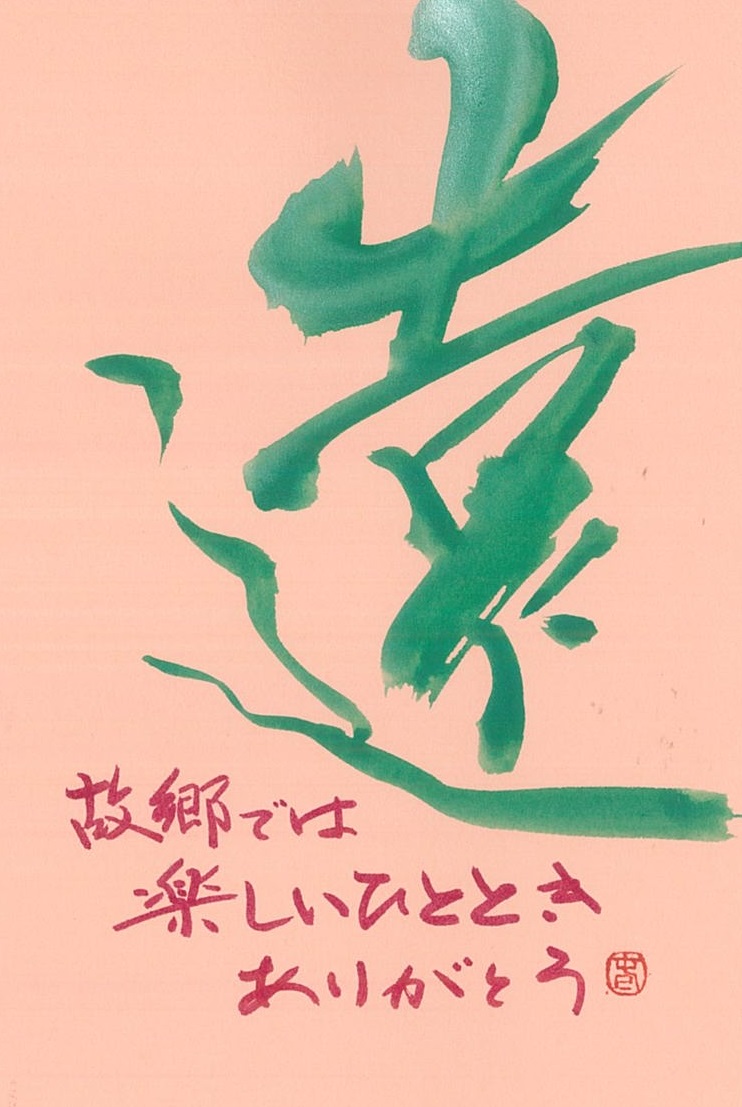 遠
故郷では
楽しいひととき
ありがとう